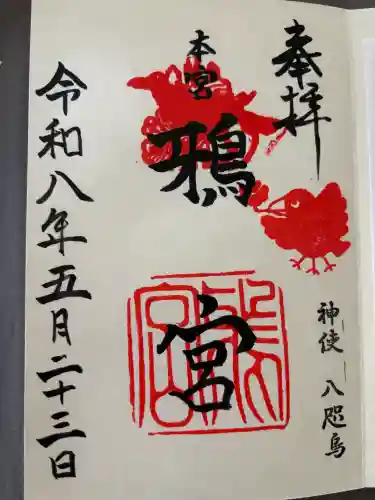 奉拝
神使 八咫烏
本宮
鴉宮
令和八年五月二十三日